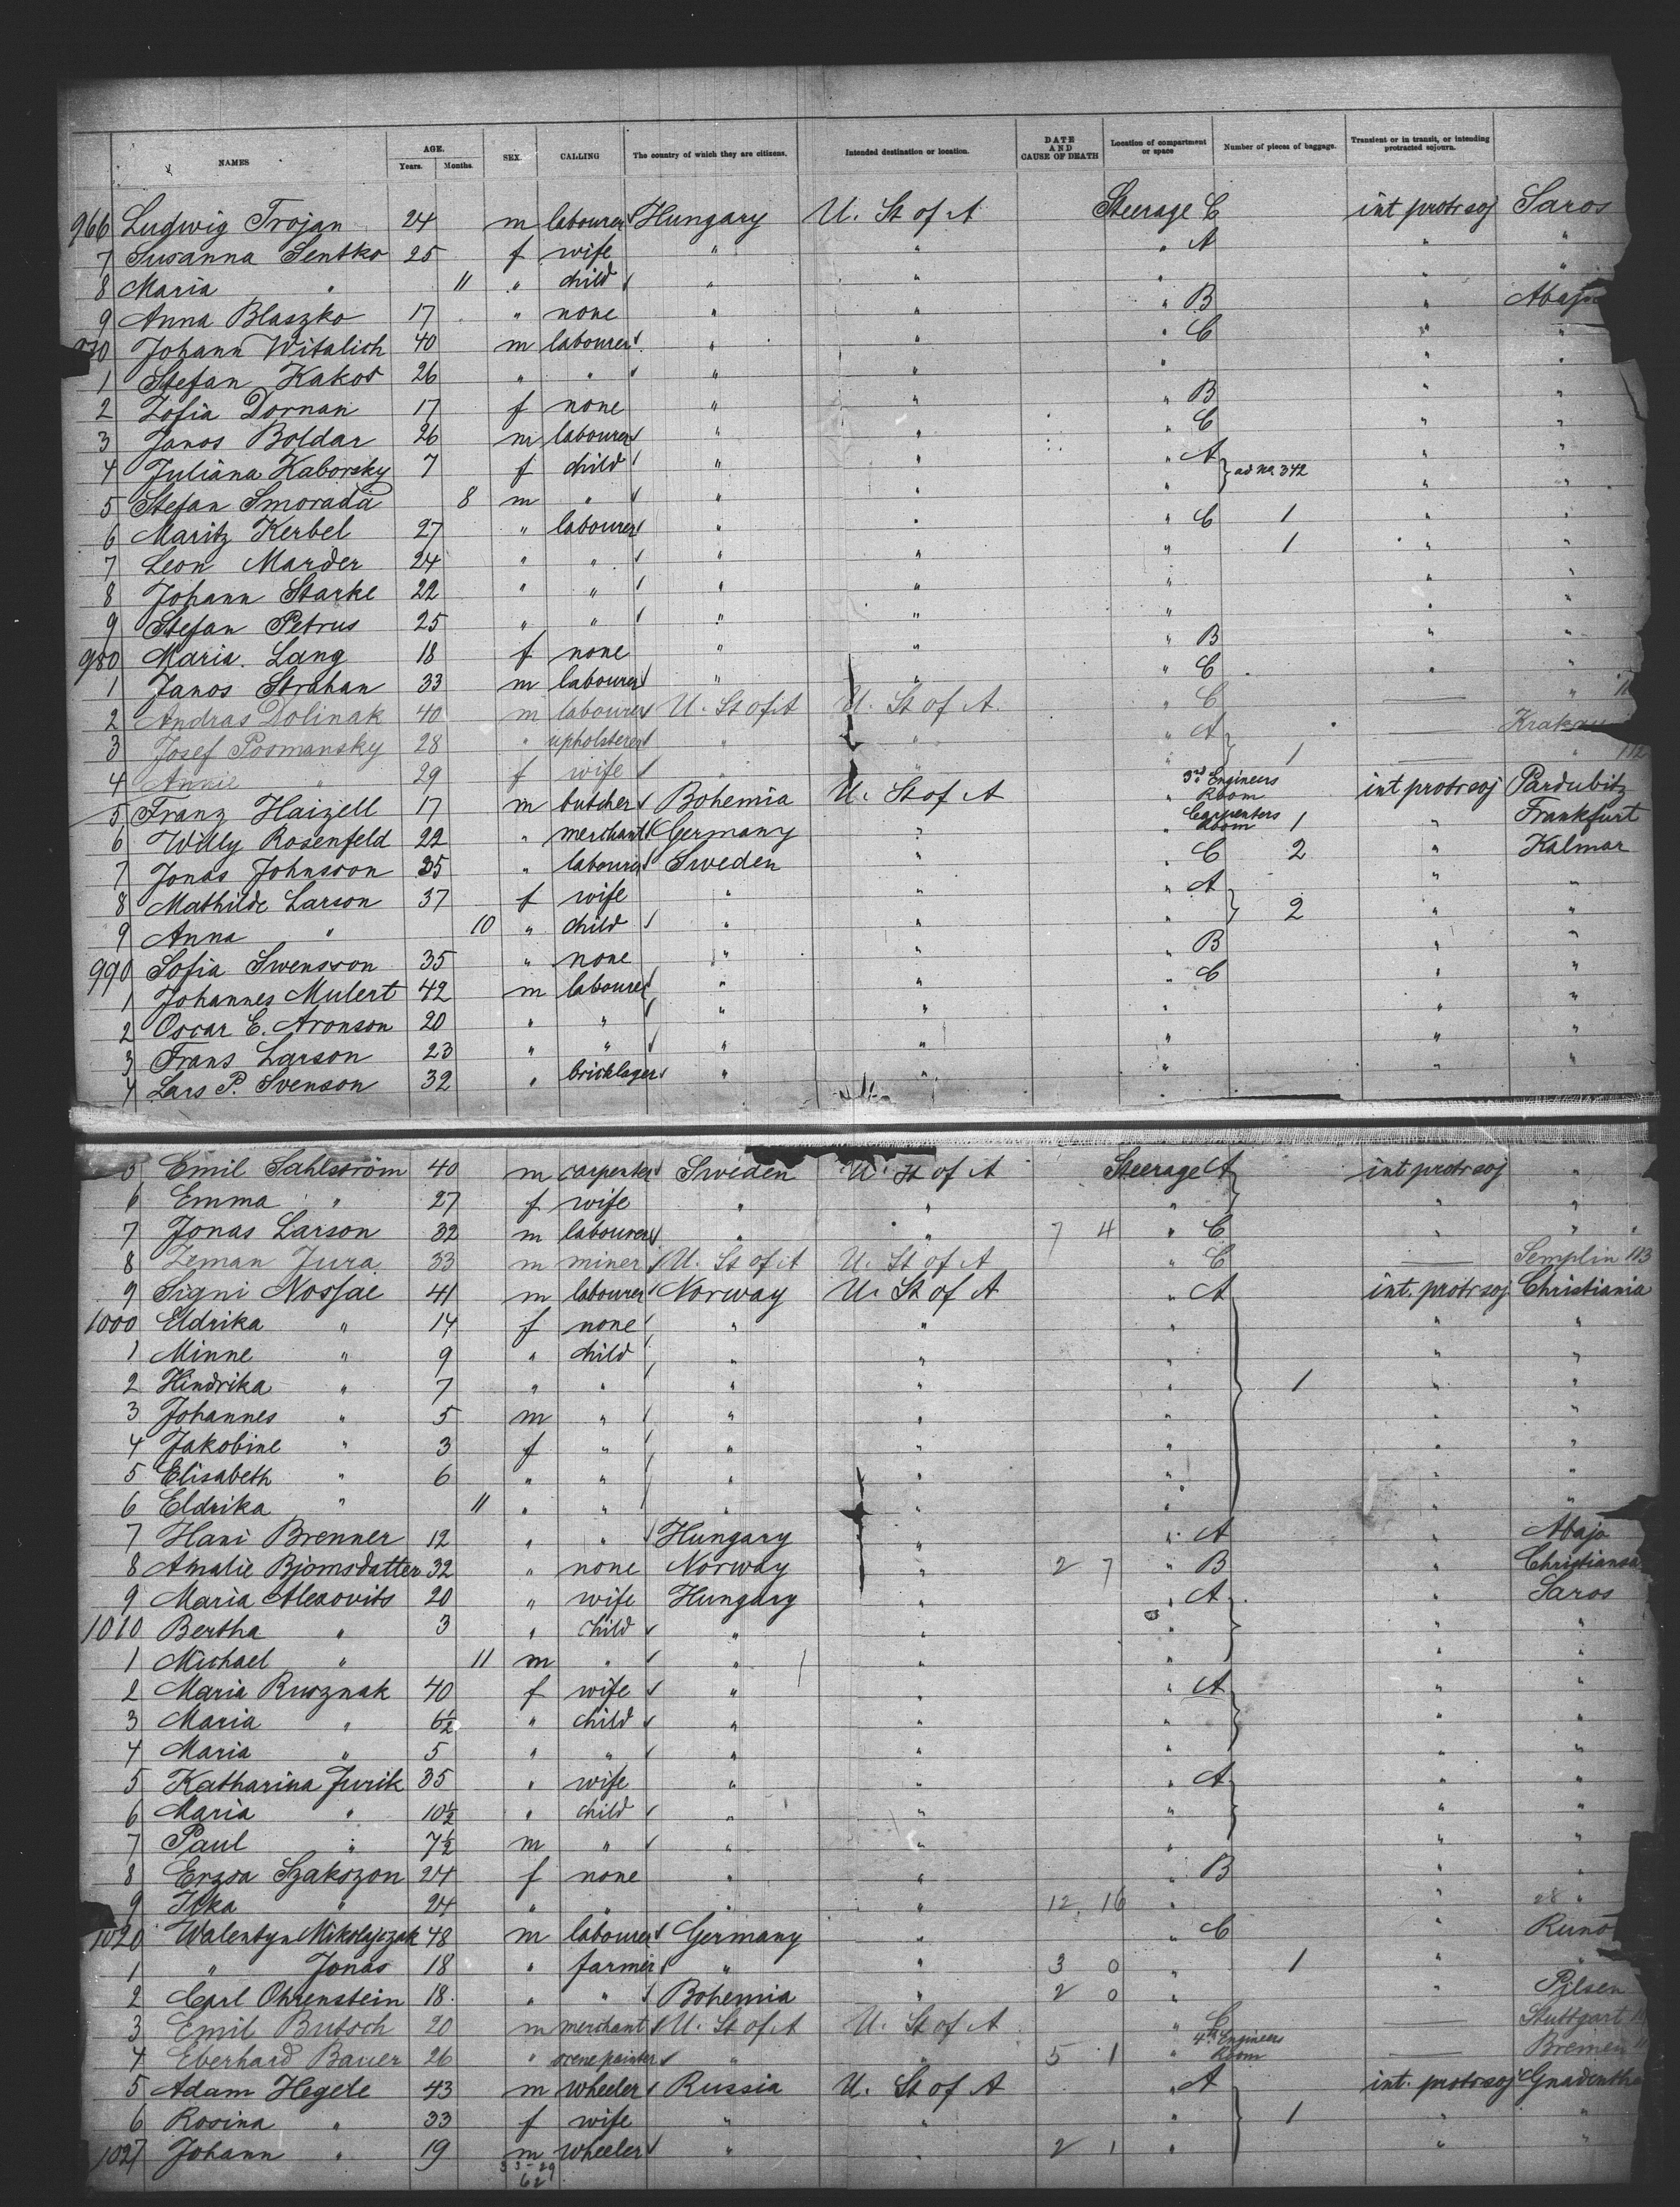 NAMES AGE. Years. Months. SEX. CALLING The country of which they are citizens. Intended destination or location. DATE AND CAUSE OF DEATH Location of compartment or space Number of pieces of baggage. Transient or in transit, or intending protracted sojourn.
966 Ludwig Trojan 24 m labourer Hungary U. St of A Steerage C int protr soj Saros
7 Susanna Sentko 25 f wife " " " A " "
8 Maria " 11 " child " " " " "
9 Anna Blaszko 17 " none " " " B " Abaj
970 Johann Witalich 40 m labourer " " " C " "
1 Stefan Kakos 26 " " " " " " "
2 Zofia Dornan 17 f none " " " B " "
3 Janos Boldar 26 m labourer " " " C " "
4 Juliana Kaborsky 7 f child " " " A } ad No. 342 " "
5 Stefan Smorada 8 m " " " " " "
6 Maritz Kerbel 27 " labourer " " " C 1 " "
7 Leon Marder 24 " " " " " 1 " "
8 Johann Starke 22 " " " " " " "
9 Stefan Petrus 25 " " " " " " "
980 Maria Lang 18 f none " " " B " "
1 Janos Strahan 33 m labourer " " " C " "
2 Andras Dolinak 40 m labourer U. St of A U. St of A. " C — "
3 Josef Posmansky 28 " upholsterer " " " A } 1 — Krakau
4 Annie " 29 f wife " " " — " 112
5 Franz Haizell 17 m butcher Bohemia U. St of A " 3rd Engineers Room int protr soj Pardubitz
6 Willy Rosenfeld 22 " merchant Germany " " Carpenters Room 1 " Frankfurt
7 Jonas Johnsson 35 " labourer Sweden " " C 2 " Kalmar
8 Mathilde Larson 37 f wife " " " A } 2 " "
9 Anna " 10 " child " " " " "
990 Sofia Swensson 35 " none " " " B " "
1 Johannes Mulert 42 m labourer " " " C " "
2 Oscar E. Aronson 20 " " " " " " "
3 Frans Larson 23 " " " " " " "
4 Lars P. Svenson 32 " bricklager " " " " "
5 Emil Sahlström 40 m carpenter Sweden U. St of A Steerage A } int protr soj "
6 Emma " 27 f wife " " " " "
7 Jonas Larson 32 m labourer " " 7 4 " C " "
8 Zeman Jura 33 m miner U. St of A U. St of A " C — Semplin 113
9 Signi Nossae 41 m labourer Norway U. St of A " A int. protr soj Christiania
1000 Eldrika " 14 f none " " " " "
1 Minne " 9 " child " " " " "
2 Hindrika " 7 " " " " " 1 " "
3 Johannes " 5 m " " " " " "
4 Jakobine " 3 f " " " " " "
5 Elisabeth " 6 " " " " " " "
6 Eldrika " 11 " " " " " " "
7 Hani Brenner 12 " " Hungary " " A " Abajo
8 Amalie Bjornsdatter 32 " none Norway " 2 7 " B " Christiansa
9 Maria Alexovits 20 " wife Hungary " " A } " Saros
1010 Bertha " 3 " child " " " " "
1 Michael " 11 m " " " " " "
2 Maria Rusznak 40 f wife " " " A } " "
3 Maria " 6½ " child " " " " "
4 Maria " 5 " " " " " " "
5 Katharina Jurik 35 " wife " " " A } " "
6 Maria " 10½ " child " " " " "
7 Paul " 7½ m " " " " " "
8 Erzsa Szakszon 24 f none " " " B " "
9 Ilka " 24 " " " " 12. 16 " " "
1020 Walentyn Mikolajczak 48 m labourer Germany " " C " Runo
1 " Jonas 18 " farmer " " 3 0 " 1 " "
2 Carl Ohrenstein 18. " " Bohemia " 2 0 " " Pilsen
3 Emil Butsch 20 m merchant U. St of A U. St of A " C — Stuttgart
4 Eberhard Bauer 26 " scenepainter " " 5 1 " 4th Engineers Room — Bremen
5 Adam Hegele 43 m wheeler Russia U. St of A " A int. protr soj Gnadentha
6 Rosina " 33 f wife " " " 1 " "
1027 Johann " 19 m wheeler " " 2 1 " " "
33-29
62